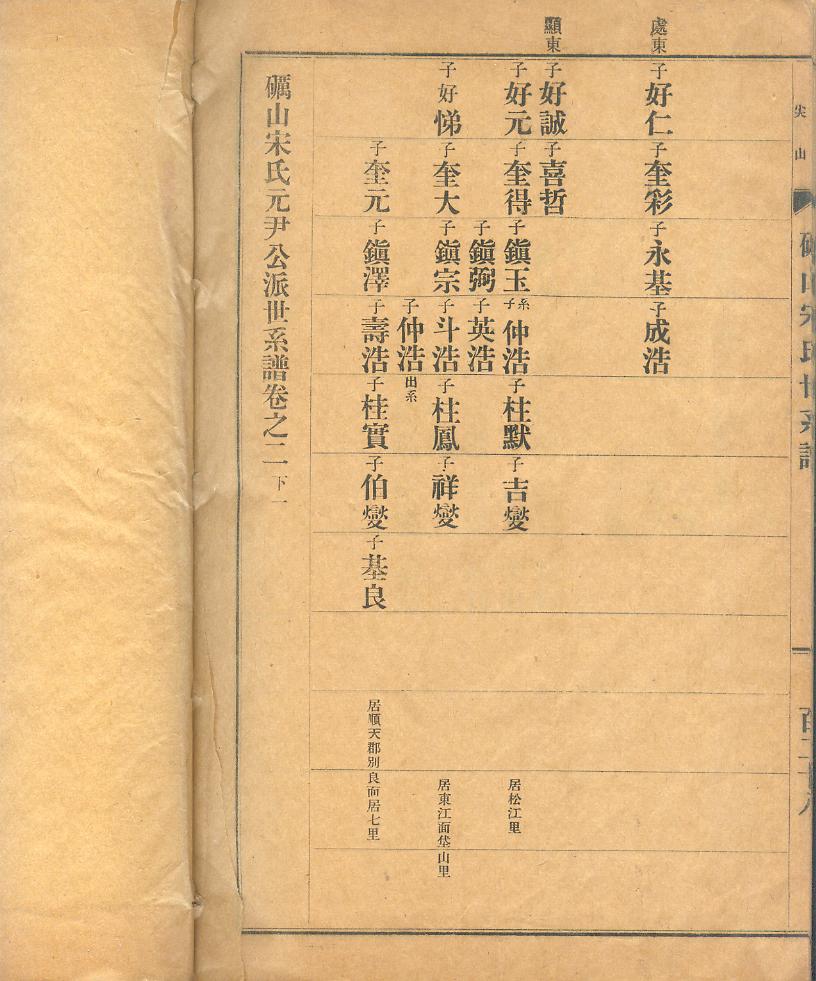 尖山
礪山宋氏世系譜
處東
子好仁
子奎彩
子永基
子成浩
顯東
子好誠
子喜哲
子好元
子奎得
子鎭玉
系子仲浩
子柱默
子吉燮
居松江里
子鎭弼
子英浩
子好悌
子奎大
子鎭宗
子斗浩
子柱鳳
子祥燮
居東江面垡山里
子仲浩出系
子奎元
子鎭澤
子壽浩
子桂實
子伯燮
子基良
居順天郡別良面居七里
礪山宋氏元尹公派世系譜卷之二下一